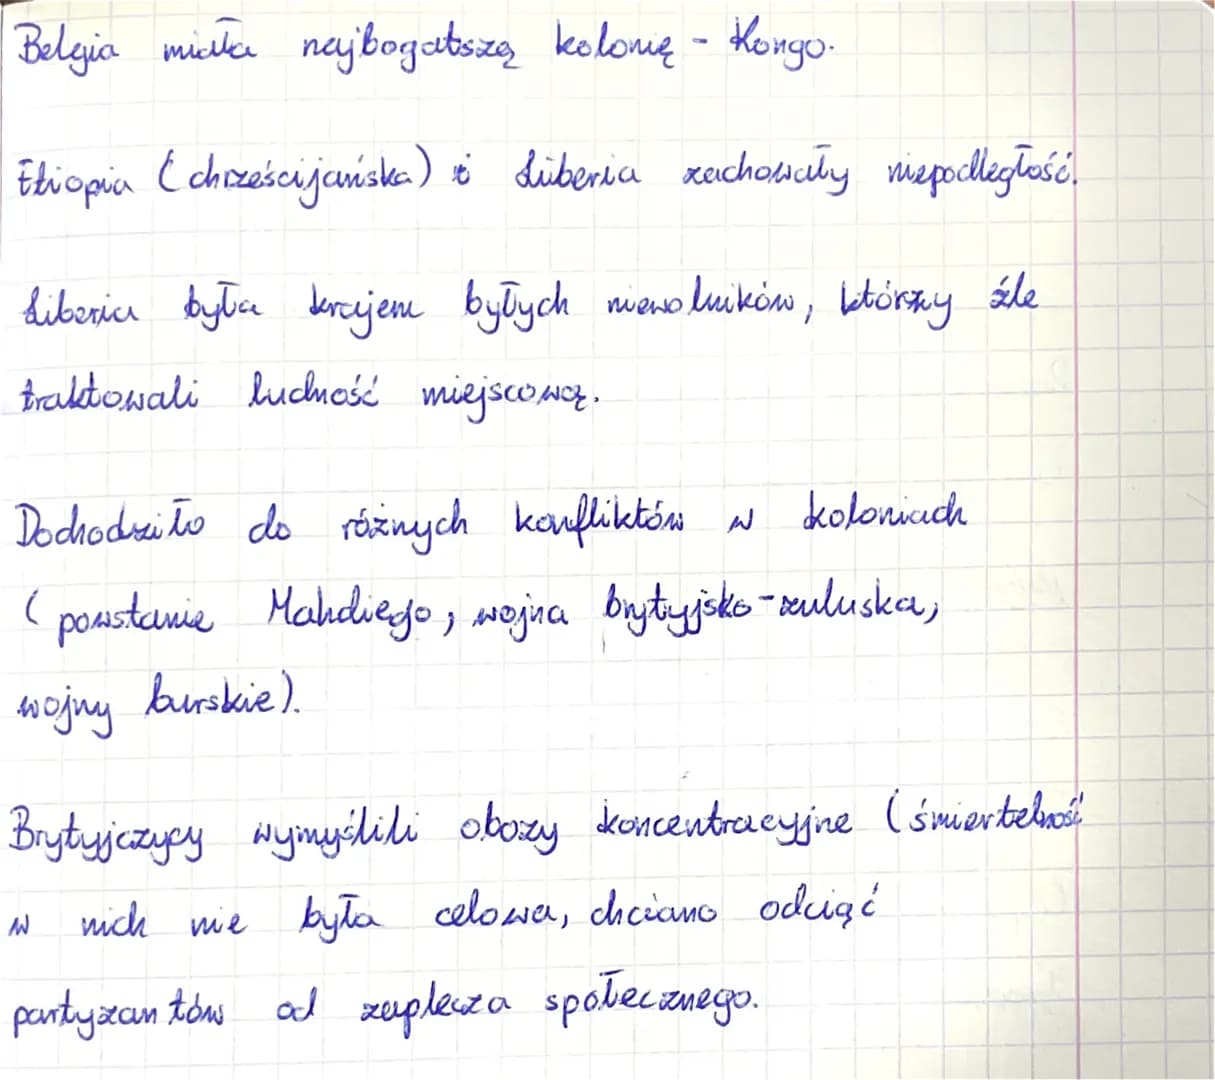 Belgia miała najbogatszą kolonię - Kongo.
Etiopia (chrześcijańska) i Liberia zachowały niepodległość.
Liberia była krajem byłych niewolników, którzy źle
traktowali ludność miejscową.
Dochodziło do różnych konfliktów w koloniach
(powstanie Mahdiego, wojna brytyjsko-zuluska,
wojny burskie).
Brytyjczycy wymyślili obozy koncentracyjne (śmiertelność
w nich nie była celowa, chciano odciąć
partyzantów od zaplecza społecznego.